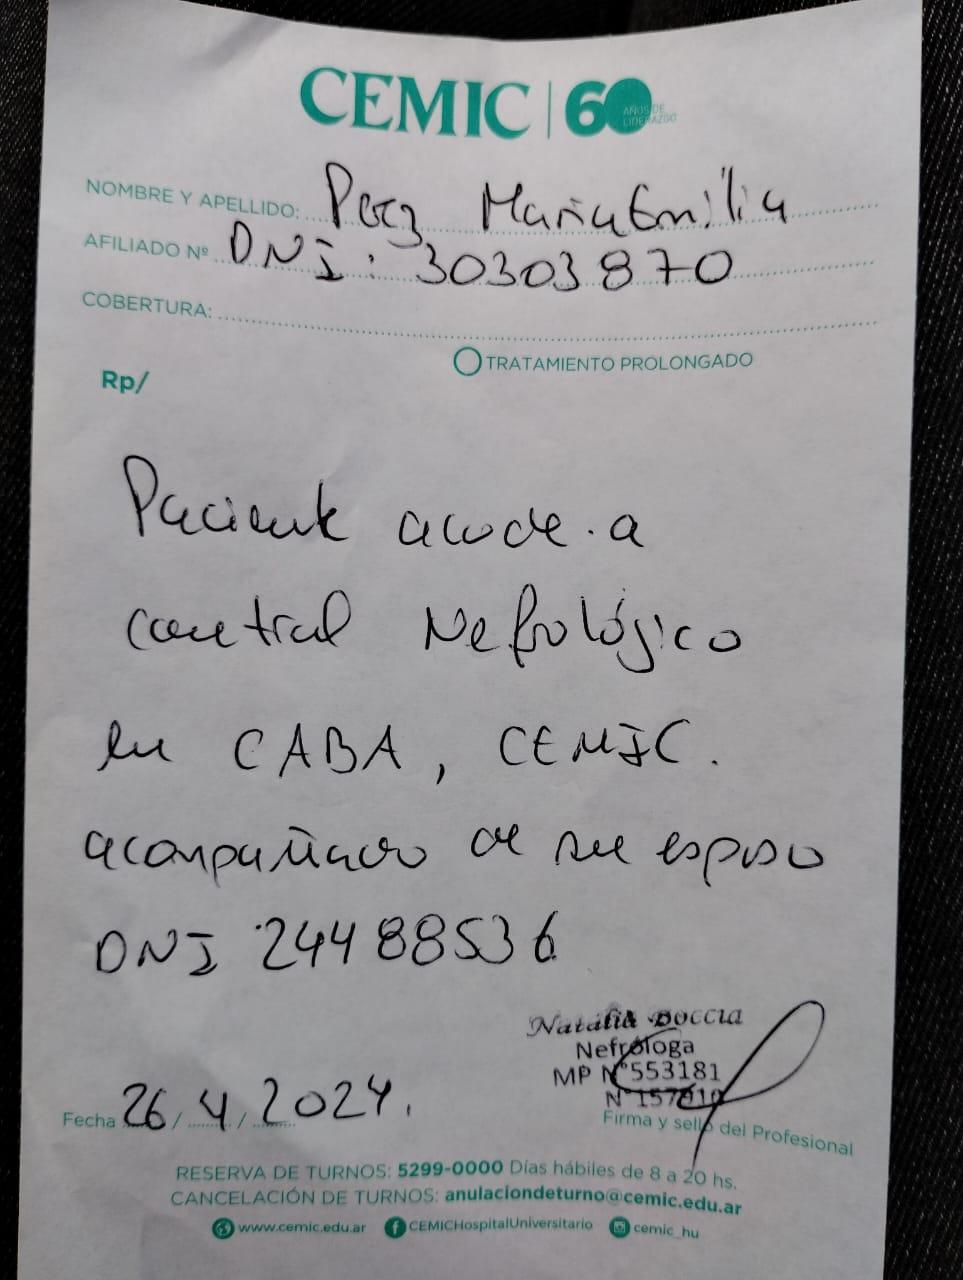 CEMIC | 60 AÑOS DE LIDERAZGO
NOMBRE Y APELLIDO: Paez Maria Emilia
AFILIADO Nº DNI: 30303870
COBERTURA:
TRATAMIENTO PROLONGADO
Rp/
Paciente acude a
control Nefrológico
en CABA, CEMIC.
acompañado de su esposo
DNI 24488536
Natalia Boccia
Nefróloga
MP Nº553181
Nº
Fecha 26/4/2024.
Firma y sello del Profesional
RESERVA DE TURNOS: 5299-0000 Días hábiles de 8 a 20 hs.
CANCELACIÓN DE TURNOS: anulaciondeturno@cemic.edu.ar
www.cemic.edu.ar CEMICHospitalUniversitario cemic_hu